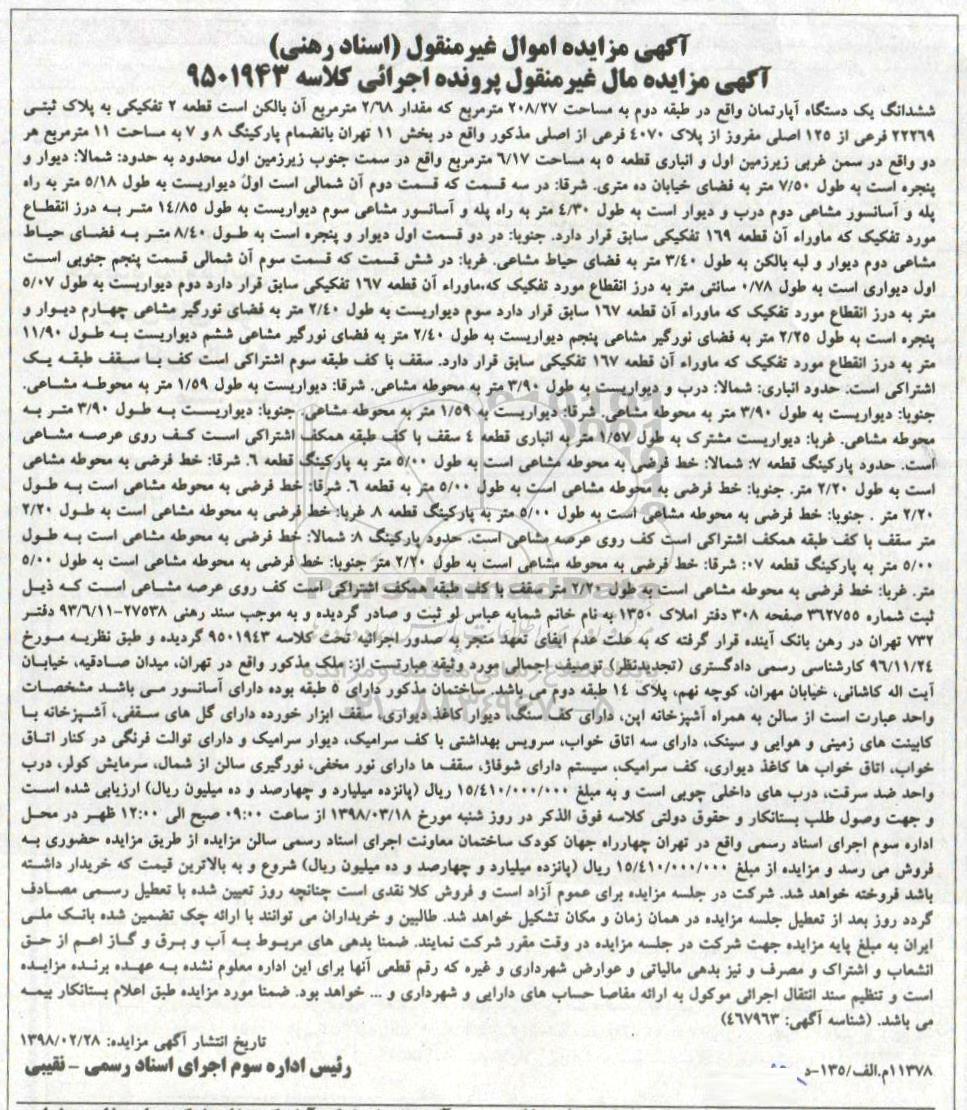 آگهی مزایده اموال غیرمنقول (اسناد رهنی)
آگهی مزایده مال غیر منقول پرونده اجرائی کلاسه ۹۵۰۱۹۴۳
ششدانگ یک دستگاه آپارتمان واقع در طبقه دوم به مساحت ۲۰۸/۲۷ مترمربع که مقدار ۲/۶۸ مترمربع آن بالکن است قطعه ۲ تفکیکی به پلاک ثبتی
۲۲۲۶۹ فرعی از ۱۲۵ اصلی مفروز از پلاک ۴۰۷۰ فرعی از اصلی مذکور واقع در بخش ۱۱ تهران بانضمام پارکینگ ۸ و ۷ به مساحت ۱۱ مترمربع هر
دو واقع در سمن غربی زیرزمین اول و انباری قطعه ۵ به مساحت ۶/۱۷ مترمربع واقع در سمت جنوب زیرزمین اول محدود به حدود: شمالا: دیوار و
پنجره است به طول ۷/۵۰ متر به فضای خیابان ده متری. شرقا: در سه قسمت که قسمت دوم آن شمالی است اول دیواریست به طول ۵/۱۸ متر به راه
پله و آسانسور مشاعی دوم درب و دیوار است به طول ۴/۳۰ متر به راه پله و آسانسور مشاعی سوم دیواریست به طول ۱۴/۸۵ متر به درز انقطاع
مورد تفکیک که ماوراء آن قطعه ۱۶۹ تفکیکی سابق قرار دارد. جنوبا: در دو قسمت اول دیوار و پنجره است به طول ۸/۴۰ متر به فضای حیاط
مشاعی دوم دیوار و لبه بالکن به طول ۳/۴۰ متر به فضای حیاط مشاعی. غربا: در شش قسمت که قسمت سوم آن شمالی قسمت پنجم جنوبی است
اول دیواری است به طول ۰/۷۸ سانتی متر به درز انقطاع مورد تفکیک که،ماوراء آن قطعه ۱۶۷ تفکیکی سابق قرار دارد دوم دیواریست به طول ۵/۰۷
متر به درز انقطاع مورد تفکیک که ماوراء آن قطعه ۱۶۷ سابق قرار دارد سوم دیواریست به طول ۲/۴۰ متر به فضای نورگیر مشاعی چهارم دیوار و
پنجره است به طول ۲/۲۵ متر به فضای نورگیر مشاعی پنجم دیواریست به طول ۲/۴۰ متر به فضای نورگیر مشاعی ششم دیواریست به طول ۱۱/۹۰
متر به درز انقطاع مورد تفکیک که ماوراء آن قطعه ۱۶۷ تفکیکی سابق قرار دارد. سقف با کف طبقه سوم اشتراکی است کف با سقف طبقه یک
اشتراکی است. حدود انباری: شمالا: درب و دیواریست به طول ۳/۹۰ متر به محوطه مشاعی. شرقا: دیواریست به طول ۱/۵۹ متر به محوطه مشاعی.
جنوبا: دیواریست به طول ۳/۹۰ متر به محوطه مشاعی. شرقا: دیواریست به ۱/۵۹ متر به محوطه مشاعی. جنوبا: دیواریست به طول ۳/۹۰ متر به
محوطه مشاعی. غربا: دیواریست مشترک به طول ۱/۵۷ متر به انباری قطعه ۴ سقف با کف طبقه همکف اشتراکی است کف روی عرصه مشاعی
است. حدود پارکینگ قطعه ۷: شمالا: خط فرضی به محوطه مشاعی است به طول ۵/۰۰ متر به پارکینگ قطعه ۶. شرقا: خط فرضی به محوطه مشاعی
است به طول ۲/۲۰ متر. جنوبا: خط فرضی به محوطه مشاعی است به طول ۵/۰۰ متر به قطعه ۶. شرقا: خط فرضی به محوطه مشاعی است به طول
۲/۲۰ متر . جنوبا: خط فرضی به محوطه مشاعی است به طول ۵/۰۰ متر به پارکینگ قطعه ۸. غربا: خط فرضی به محوطه مشاعی است به طول ۲/۲۰
متر سقف با کف طبقه همکف اشتراکی است کف روی عرصه مشاعی است. حدود پارکینگ ۸: شمالا: خط فرضی به محوطه مشاعی است به طول
۵/۰۰ متر به پارکینگ قطعه ۰۷: شرقا: خط فرضی به محوطه مشاعی است به طول ۲/۲۰ متر جنوبا: خط فرضی به محوطه مشاعی است به طول ۵/۰۰
متر. غربا: خط فرضی به محوطه مشاعی است به طول ۲/۲۰ متر سقف با کف طبقه همکف اشتراکی است کف روی عرصه مشاعی است که ذیل
ثبت شماره ۳۶۲۷۵۵ صفحه ۳۰۸ دفتر املاک ۱۳۵۰ به نام خانم شمایه عباس لو ثبت و صادر گردیده و به موجب سند رهنی ۲۷۵۳۸-۹۳/۶/۱۱ دفتر
۷۳۲ تهران در رهن بانک آینده قرار گرفته که به علت عدم ایفای تعهد منجر به صدور اجرائیه تحت کلاسه ۹۵۰۱۹۴۳ گردیده و طبق نظریه مورخ
۹۶/۱۱/۲۴ کارشناسی رسمی دادگستری (تجدیدنظر) توصیف اجمالی مورد وثیقه عبارتست از: ملک مذکور واقع در تهران، میدان صادقیه، خیابان
آیت اله کاشانی، خیابان مهران، کوچه نهم، پلاک ۱۴ طبقه دوم می باشد. ساختمان مذکور دارای ۵ طبقه بوده دارای آسانسور می باشد مشخصات
واحد عبارت است از سالن به همراه آشپزخانه اپن، دارای کف سنگ، دیوار کاغذ دیواری، سقف ابزار خورده دارای گل های سقفی، آشپزخانه با
کابینت های زمینی و هوایی و سینک، دارای سه اتاق خواب، سرویس بهداشتی با کف سرامیک، دیوار سرامیک و دارای توالت فرنگی در کنار اتاق
خواب، اتاق خواب ها کاغذ دیواری، کف سرامیک، سیستم دارای شوفاژ، سقف ها دارای نور مخفی، نورگیری سالن از شمال، سرمایش کولر، درب
واحد ضد سرقت، درب های داخلی چوبی است و به مبلغ ۱۵/۴۱۰/۰۰۰/۰۰۰ ریال (پانزده میلیارد و چهارصد و ده میلیون ریال) ارزیابی شده است
و جهت وصول طلب بستانکار و حقوق دولتی کلاسه فوق الذکر در روز شنبه مورخ ۱۳۹۸/۰۳/۱۸ از ساعت ۰۹:۰۰ صبح الی ۱۲:۰۰ ظهر در محل
اداره سوم اجرای اسناد رسمی واقع در تهران چهارراه جهان کودک ساختمان معاونت اجرای اسناد رسمی سالن مزایده از طریق مزایده حضوری به
فروش می رسد و مزایده از مبلغ ۱۵/۴۱۰/۰۰۰/۰۰۰ ریال (پانزده میلیارد و چهارصد و ده میلیون ریال) شروع و به بالاترین قیمت که خریدار داشته
باشد فروخته خواهد شد. شرکت در جلسه مزایده برای عموم آزاد است و فروش کلا نقدی است چنانچه روز تعیین شده با تعطیل رسمی مصادف
گردد روز بعد از تعطیل جلسه مزایده در همان زمان و مکان تشکیل خواهد شد. طالبین و خریداران می توانند با ارائه چک تضمین شده بانک ملی
ایران به مبلغ پایه مزایده جهت شرکت در جلسه مزایده در وقت مقرر شرکت نمایند. ضمنا بدهی های مربوط به آب و برق و گاز اعم از حق
انشعاب و اشتراک و مصرف و نیز بدهی مالیاتی و عوارض شهرداری و غیره که رقم قطعی آنها برای این اداره معلوم نشده به عهده برنده مزایده
است و تنظیم سند انتقال اجرائی موکول به ارائه مفاصا حساب های دارایی و شهرداری و ... خواهد بود. ضمنا مورد مزایده طبق اعلام بستانکار بیمه
می باشد. (شناسه آگهی: ۴۶۷۹۶۳)
تاریخ انتشار آگهی مزایده: ۱۳۹۸/۰۲/۲۸
رئیس اداره سوم اجرای اسناد رسمی - نقیبی
۱۱۳۷۸م.الف/۱۳۵-د